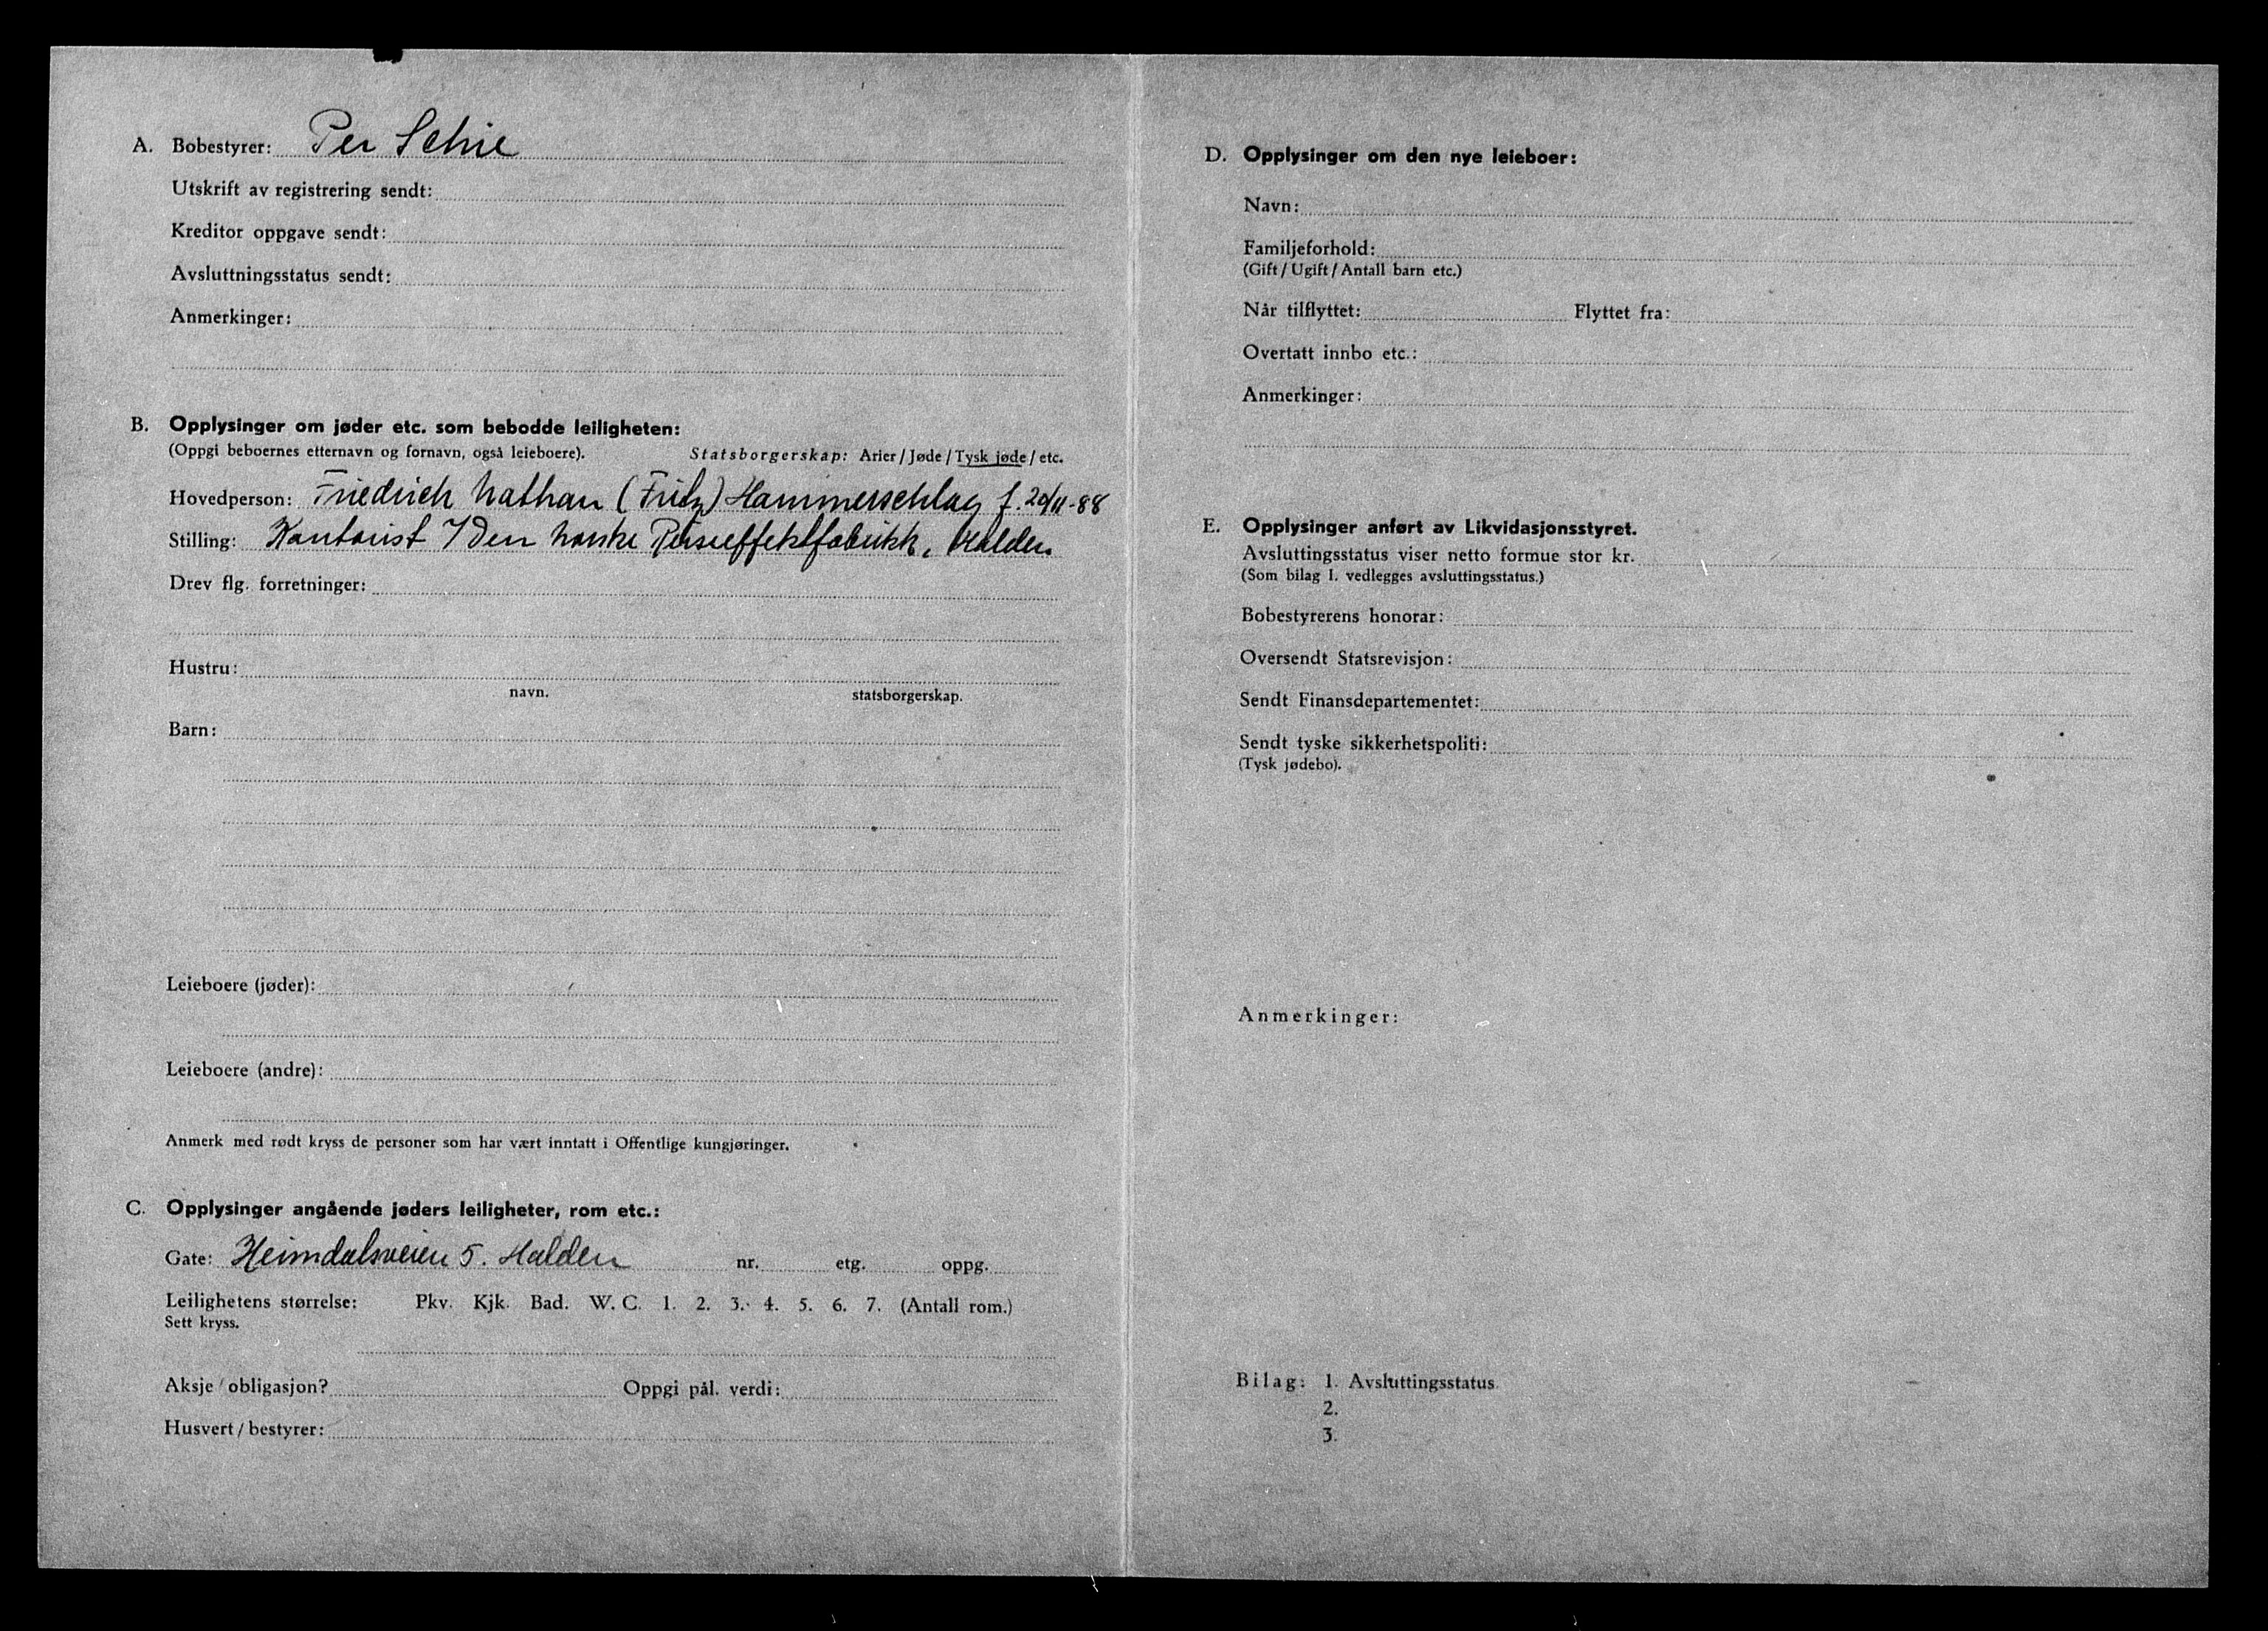 A. Bobestyrer: Per Schie
Utskrift av registrering sendt:
Kreditor oppgave sendt:
Avsluttningsstatus sendt:
Anmerkinger:
B. Opplysinger om jøder etc. som bebodde leiligheten:
(Oppgi beboernes etternavn og fornavn, også leieboere). Statsborgerskap: Arier / Jøde / Tysk jøde / etc.
Hovedperson: Friedrich Nathan (Fritz) Hammerschlag f. 20/11-88
Stilling: Kontorist i Den norske Reiseeffektfabrikk, Halden.
Drev flg. forretninger:
Hustru:
navn. statsborgerskap.
Barn:
Leieboere (jøder):
Leieboere (andre):
Anmerk med rødt kryss de personer som har vært inntatt i Offentlige kungjøringer.
C. Opplysinger angående jøders leiligheter, rom etc.:
Gate: Heimdalsveien 5. Halden nr. etg. oppg.
Leilighetens størrelse: Pkv. Kjk. Bad. W. C. 1. 2. 3. 4. 5. 6. 7. (Antall rom.)
Sett kryss.
Aksje / obligasjon? Oppgi pål. verdi:
Husvert / bestyrer:
D. Opplysinger om den nye leieboer:
Navn:
Familjeforhold:
(Gift / Ugift / Antall barn etc.)
Når tilflyttet: Flyttet fra:
Overtatt innbo etc.:
Anmerkinger:
E. Opplysinger anført av Likvidasjonsstyret.
Avsluttingsstatus viser netto formue stor kr.
(Som bilag 1. vedlegges avsluttingsstatus.)
Bobestyrerens honorar:
Oversendt Statsrevisjon:
Sendt Finansdepartementet:
Sendt tyske sikkerhetspoliti:
(Tysk jødebo).
Anmerkinger:
Bilag: 1. Avsluttingsstatus.
2.
3.